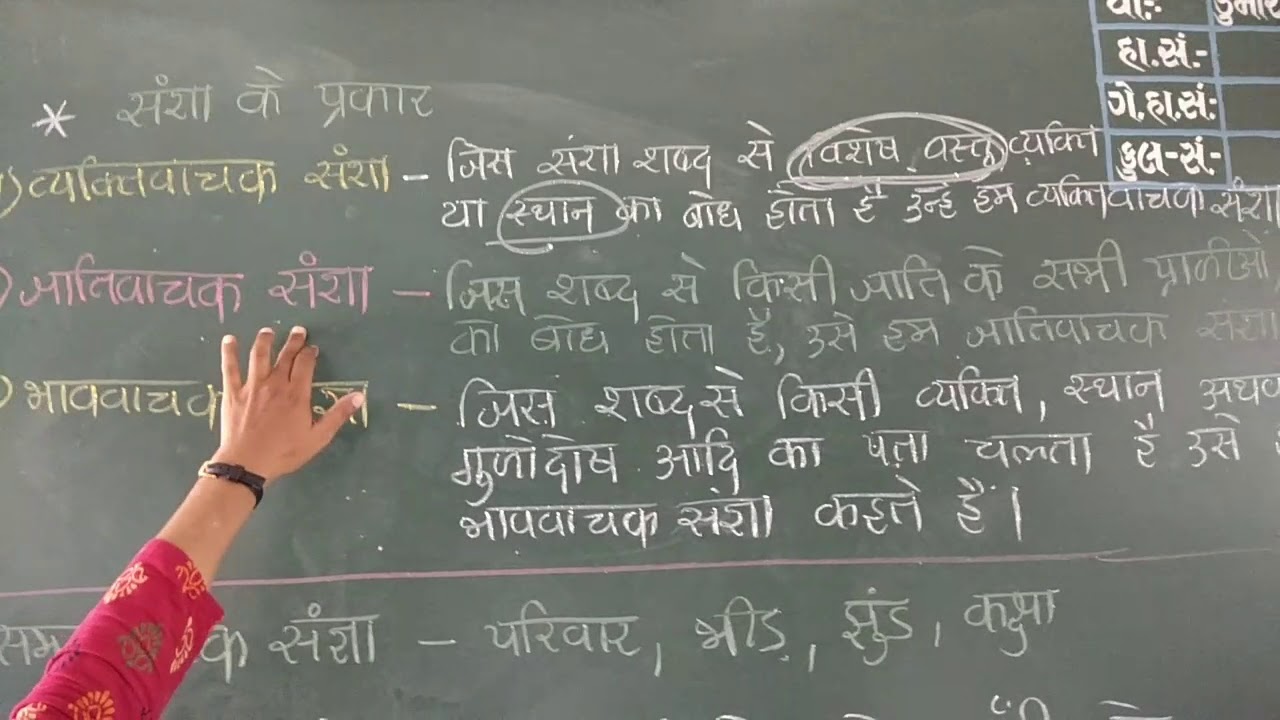 * संज्ञा के प्रकार
व्यक्तिवाचक संज्ञा - जिस संज्ञा शब्द से विशेष वस्तू व्यक्ति
या स्थान का बोध होता है उन्हे हम व्यक्तिवाचक संज्ञा
जातिवाचक संज्ञा - जिस शब्द से किसी जाति के सभी प्राणीओ
का बोध होता है, उसे हम जातिवाचक संज्ञा
भाववाचक - जिस शब्द से किसी व्यक्ति, स्थान
गुणोदोष आदि का पता चलता है उसे
भाववाचक संज्ञा कहते हैं।
संज्ञा - परिवार, भीड़, झुंड, कक्षा
હા.સં.-
ગે.હા.સં:-
કુલ-સં-